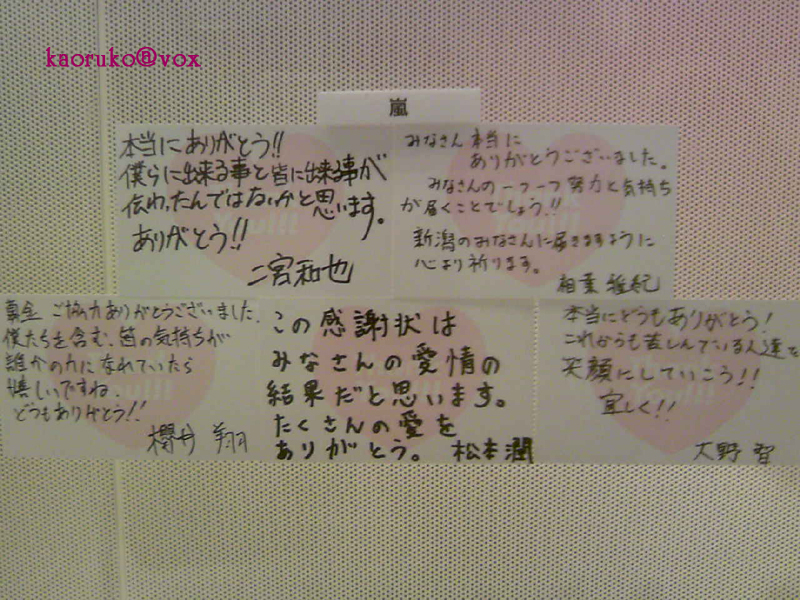 kaoruko@vox
嵐
本当にありがとう!!
僕らに出来る事と皆に出来る事が
伝わったんではないかと思います。
ありがとう!!
二宮和也
みなさん本当に
ありがとうございました。
みなさんの一つ一つ努力と気持ち
が届くことでしょう!!
新潟のみなさんに届きますように
心より祈ります。
相葉雅紀
募金 ご協力ありがとうございました.
僕たちを含む、皆の気持ちが
誰かの力になれていたら
嬉しいですね.
どうもありがとう!!
櫻井 翔
この感謝状は
みなさんの愛情の
結果だと思います。
たくさんの愛を
ありがとう。 松本潤
本当にどうもありがとう!
これからも苦しんでいる人達を
笑顔にしていこう!!
宜しく!!
大野 智